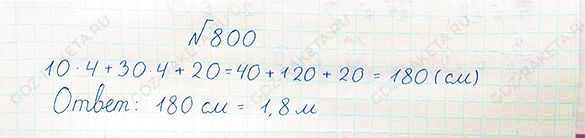 №800
10 · 4 + 30 · 4 + 20 = 40 + 120 + 20 = 180 (см)
Ответ: 180 см = 1,8 м
GDZ-RAKETA.RU